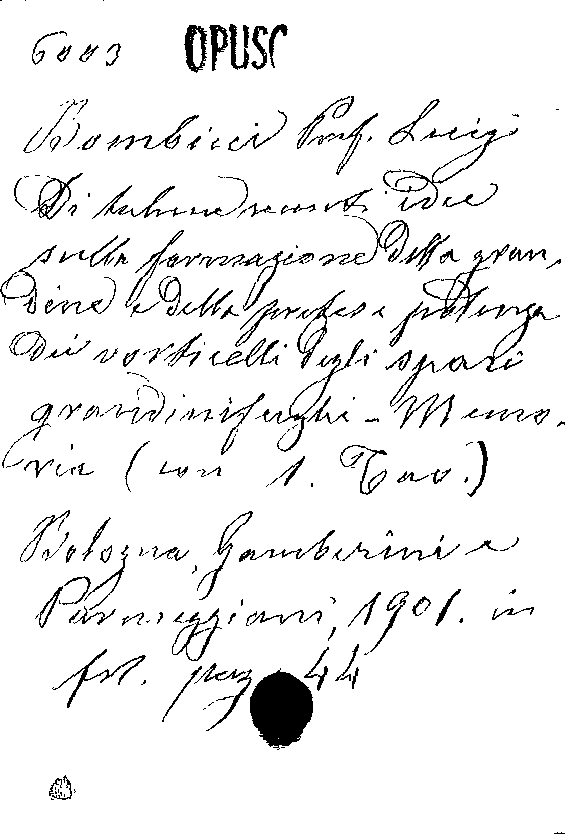 6003 OPUSC
Bombicci Prof. Luigi
Di talune recenti idee
sulla formazione della gran,
dine e della pretesa potenza
dei vorticelli degli spari
grandinifughi - Memo.
ria (con 1. Tav.)
Bologna, Gamberini e
Parmeggiani, 1901. in
fol. pag. 44